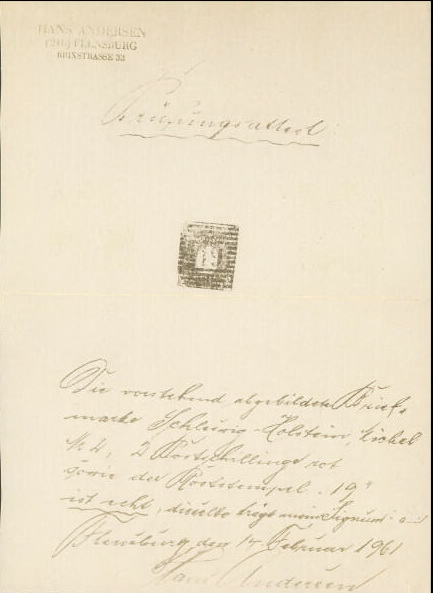 HANS ANDERSEN
(24b) FLENSBURG
BRIXSTRASSE 33
Prüfungsattest
19
Die vorstehend abgebildete Brief-
marke Schleswig-Holstein, Michel
Nr. 4, 2 Postschillinge rot
sowie der Poststempel „19"
ist echt, dieselbe trägt mein Signum
Flensburg, den 14 Februar 1961
Hans Andersen